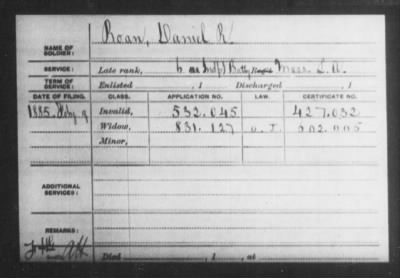 Roan, Daniel R
NAME OF SOLDIER:
SERVICE: Late rank, Batty Mass. L. A.
TERM OF SERVICE: Enlisted , 1 Discharged , 1
DATE OF FILING. CLASS. APPLICATION NO. LAW. CERTIFICATE NO.
1885. Feby 9 Invalid, 532.045 427.032
Widow, 831.127 O. L
Minor,
ADDITIONAL SERVICES:
REMARKS:
Died , 1 , at